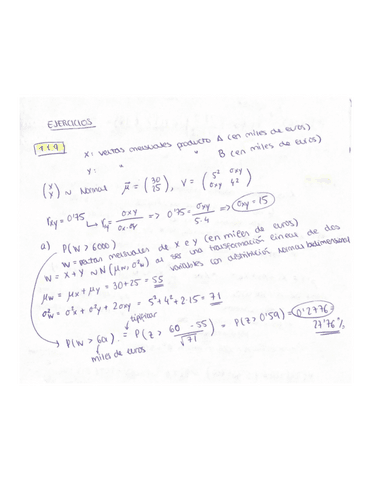 EJERCICIOS
11.9
X: ventas mensuales producto A (en miles de euros)
Y: " " B (en miles de euros)
(X Y) ~ Normal μ⃗ = (30 25), V = (5² σxy σxy 4²)
rxy = 0'75 → rxy = σxy / σx·σy => 0'75 = σxy / 5·4 => σxy = 15
a) P(W > 6000)
W = ventas mensuales de X e Y (en miles de euros)
W = X + Y ~ N(μw, σ²w) al ser una transformación lineal de dos
variables con distribución normal bidimensional
μw = μx + μy = 30 + 25 = 55
σ²w = σ²x + σ²y + 2σxy = 5² + 4² + 2·15 = 71
tipificar
P(W > 60) = P(Z > 60 - 55 / √71) = P(Z > 0'59) = 0'2776
miles de euros
27'76%